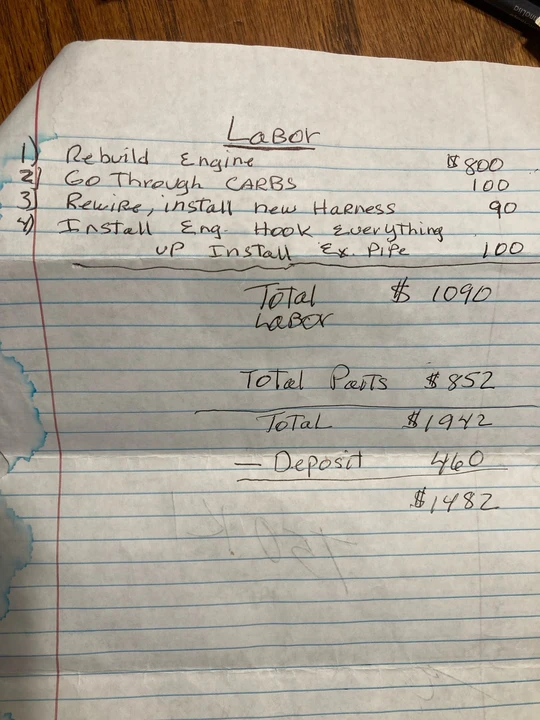 LABOR
1) Rebuild Engine $800
2) Go Through CARBS 100
3) Rewire, install new Harness 90
4) Install Eng. Hook Everything
up Install Ex. Pipe 100
Total $ 1090
LABOR
Total Parts $852
Total $1942
— Deposit 460
$1482